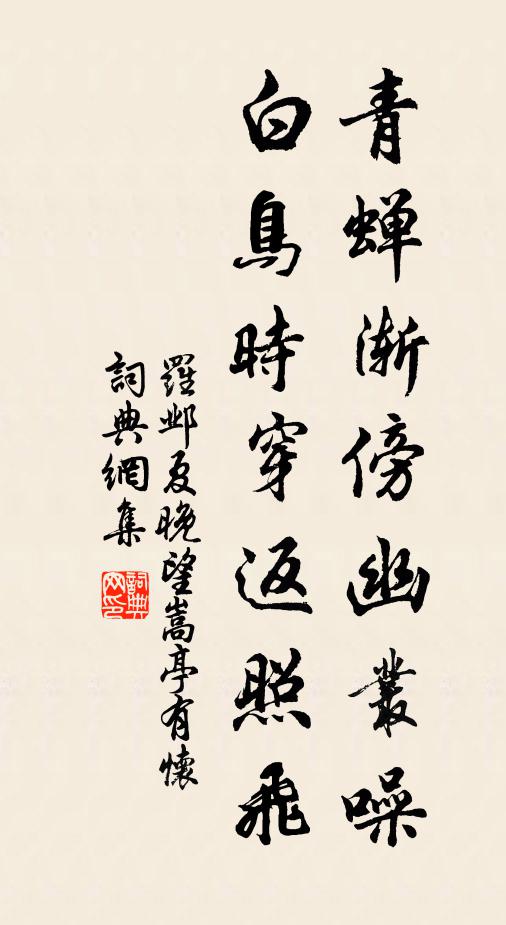 青蝉漸傍幽叢噪
白鳥時穿返照飛
羅邺夏晚望嵩亭有懷
詞典網集
詞典网印